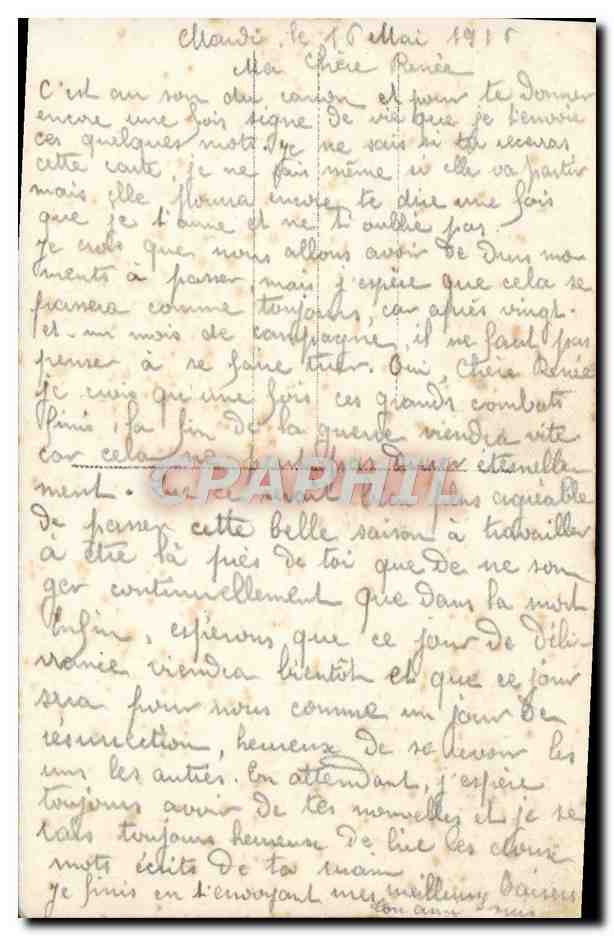 Mardi, le 16 Mai 1916
Ma Chère Renée
C'est au son du canon et pour te donner
encore une fois signe de vie que je t'envoie
ces quelques mots. Je ne sais si tu recevras
cette carte, je ne sais même si elle va partir
mais elle pourra encore te dire une fois
que je t'aime et ne t'oublie pas.
Je crois que nous allons avoir de durs mo-
ments à passer, mais j'espère que cela se
passera comme toujours, car après vingt-
et-un mois de campagne, il ne faut pas
penser à se faire tuer. Oui, Chère Renée
je crois qu'une fois ces grands combats
finis, la fin de la guerre viendra vite
car cela ne peut pas durer éternelle
ment. ce serait plus agréable
CPARPHIL
de passer cette belle saison à travailler
à être là près de toi que de ne son
ger continuellement que dans la mort
Enfin, espérons que ce jour de déli
vrance viendra bientôt et que ce jour
sera pour nous comme un jour de
résurrection, heureux de se revoir les
uns les autres. En attendant, j'espère
toujours avoir de tes nouvelles et je se
rais toujours heureux de lire les doux
mots écrits de ta main
Je finis en t'envoyant mes meilleurs baisers
Ton ami